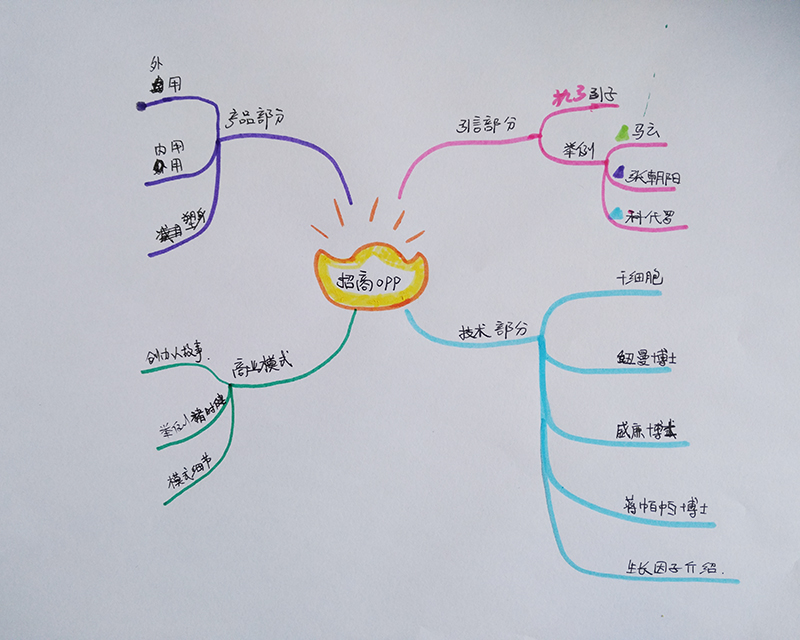 招商OPP
引言部分
引子
举例
马云
张朝阳
科代罗
技术部分
干细胞
纽曼博士
威廉博士
蒋帕帕博士
生长因子介绍.
商业模式
创办人故事.
举例小猪
模式细节
产品部分
外
用
内用
用
塑身